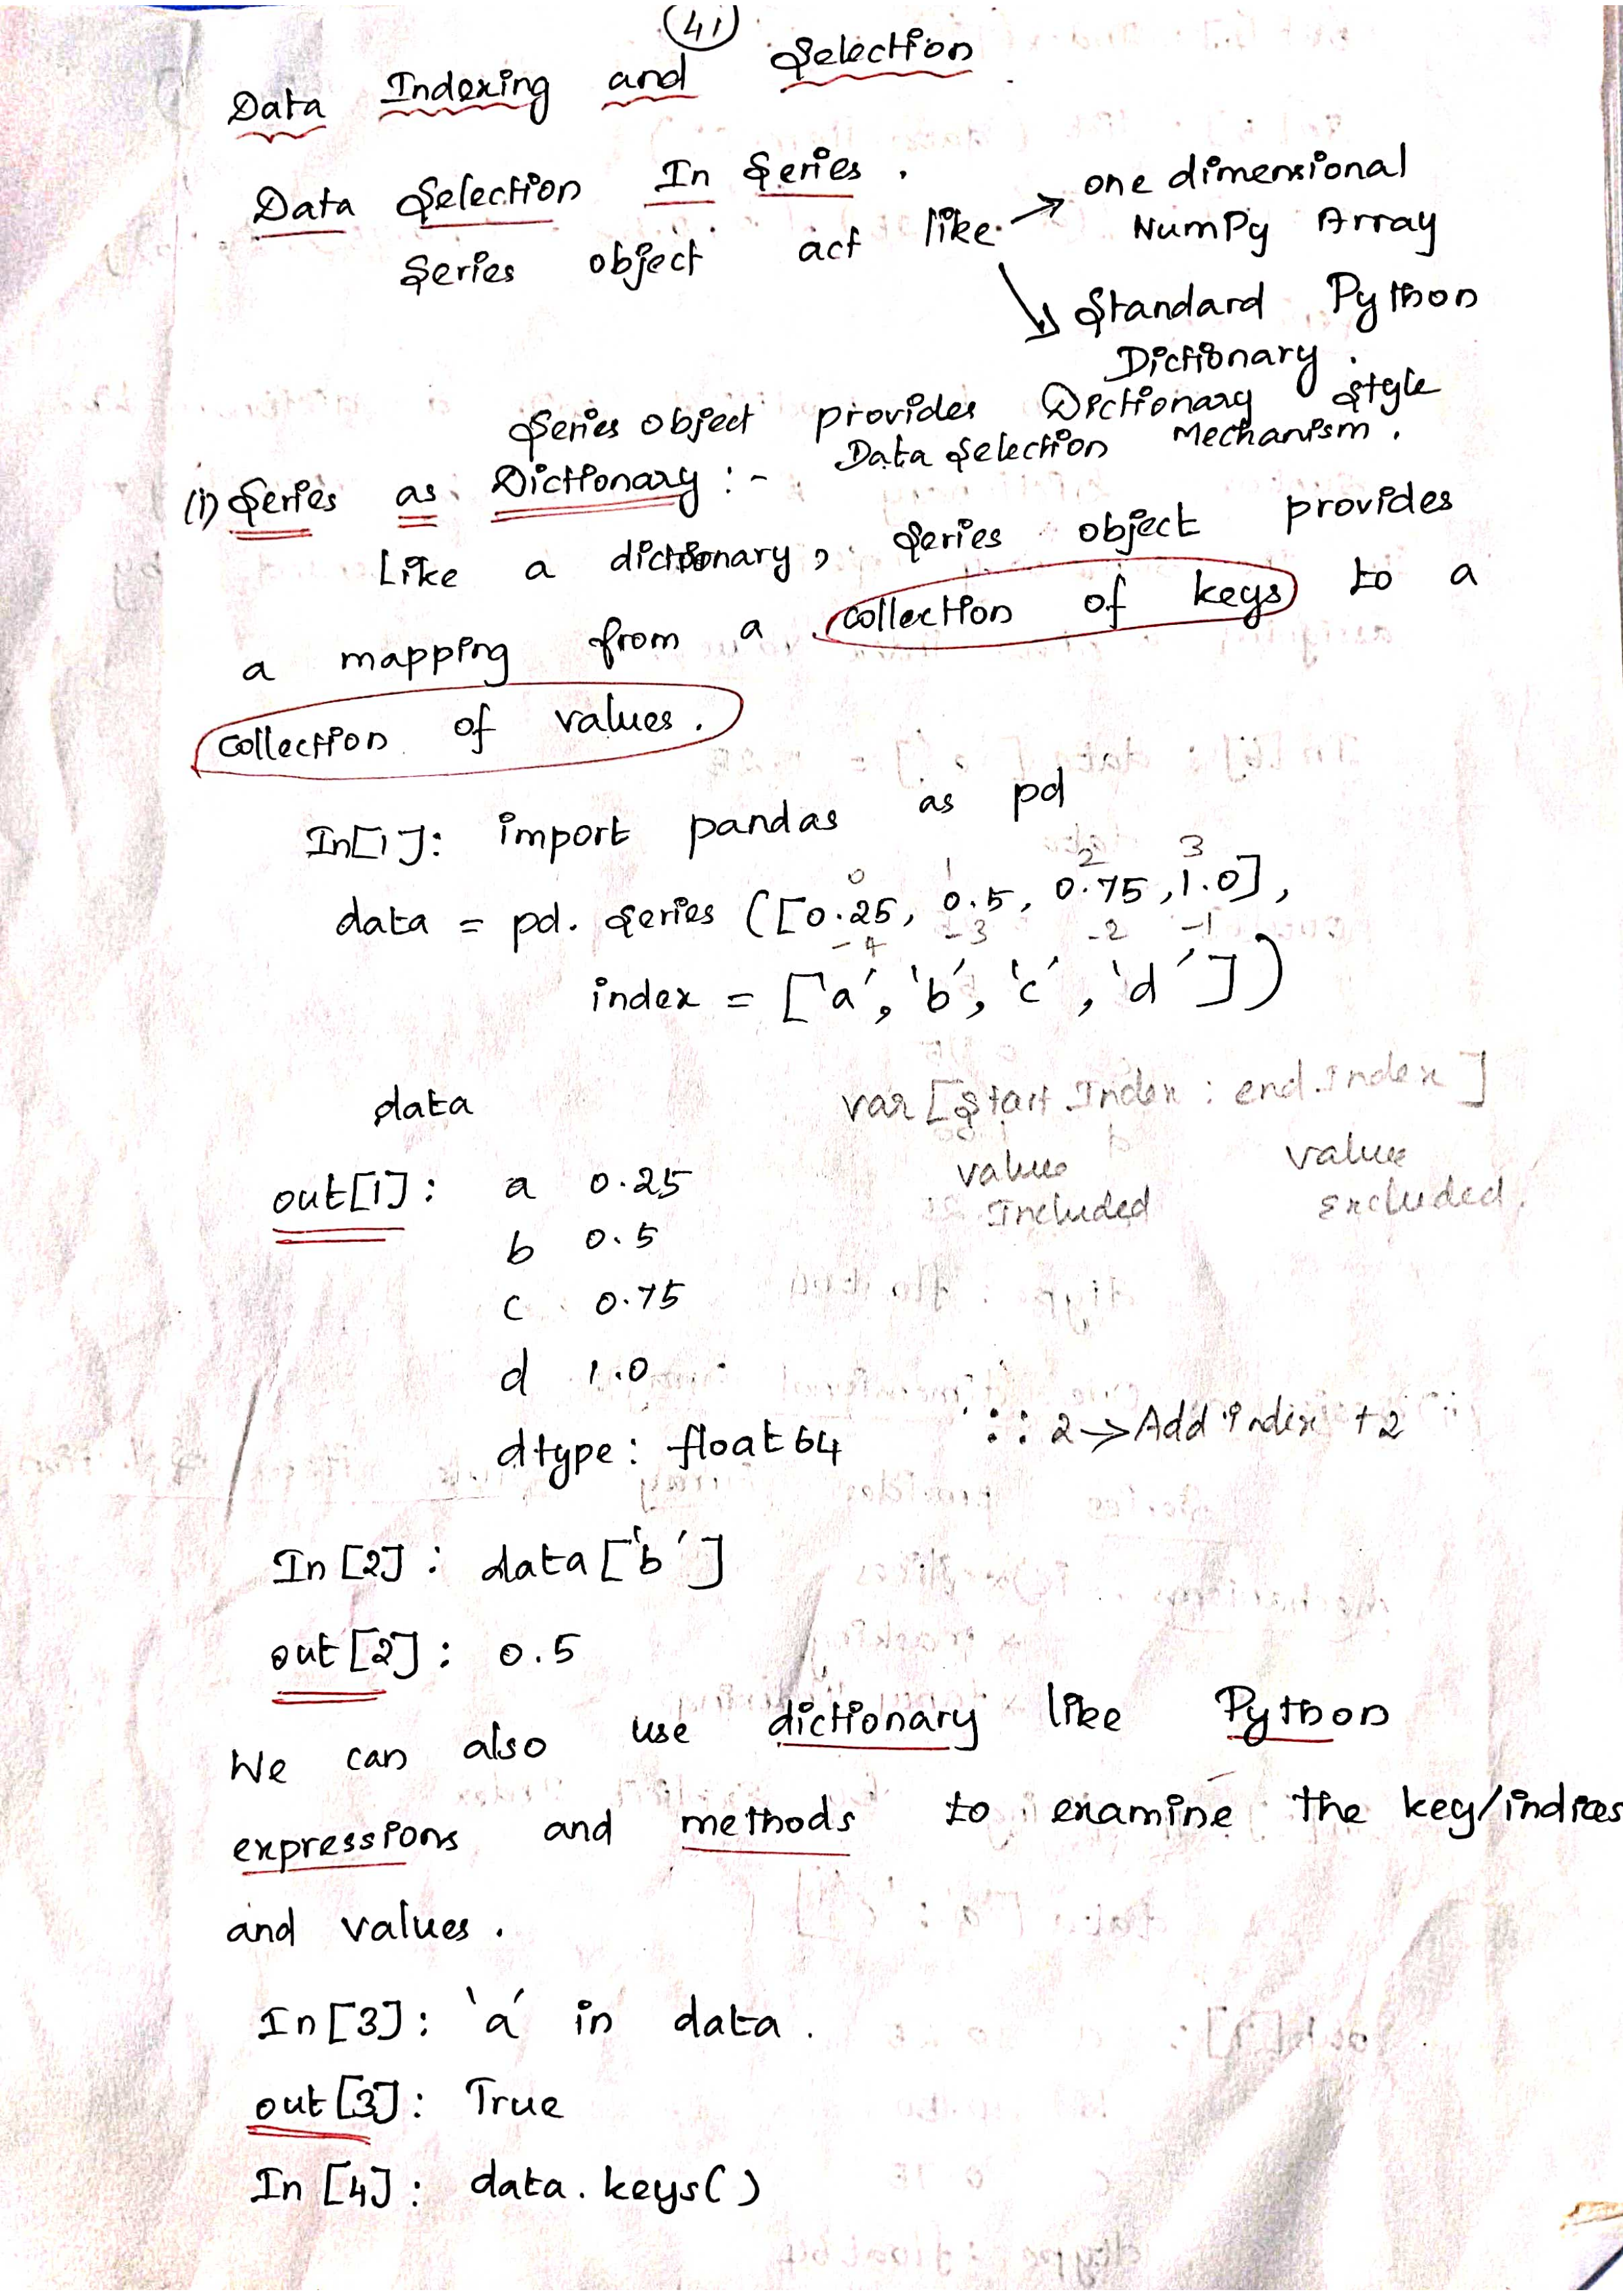 41
Data Indexing and Selection
Data Selection In Series.
Series object act like → one dimensional
NumPy Array
↘ Standard Python
Dictionary.
Series object provides Dictionary style
Data Selection Mechanism.
(i) Series as Dictionary :-
Like a dictionary, Series object provides
a mapping from a collection of keys to a
collection of values.
In[1]: import pandas as pd
0 1 2 3
data = pd. Series ([0.25, 0.5, 0.75, 1.0],
-4 -3 -2 -1
index = ['a', 'b', 'c', 'd'])
data
var [Start Index : end Index]
value value
Included Excluded.
out[1]: a 0.25
b 0.5
c 0.75
d 1.0
dtype: float64
:: 2 → Add index +2
In [2]: data['b']
out[2]: 0.5
We can also use dictionary like Python
expressions and methods to examine the key/indices
and values.
In[3]: 'a' in data.
out[3]: True
In [4]: data.keys()